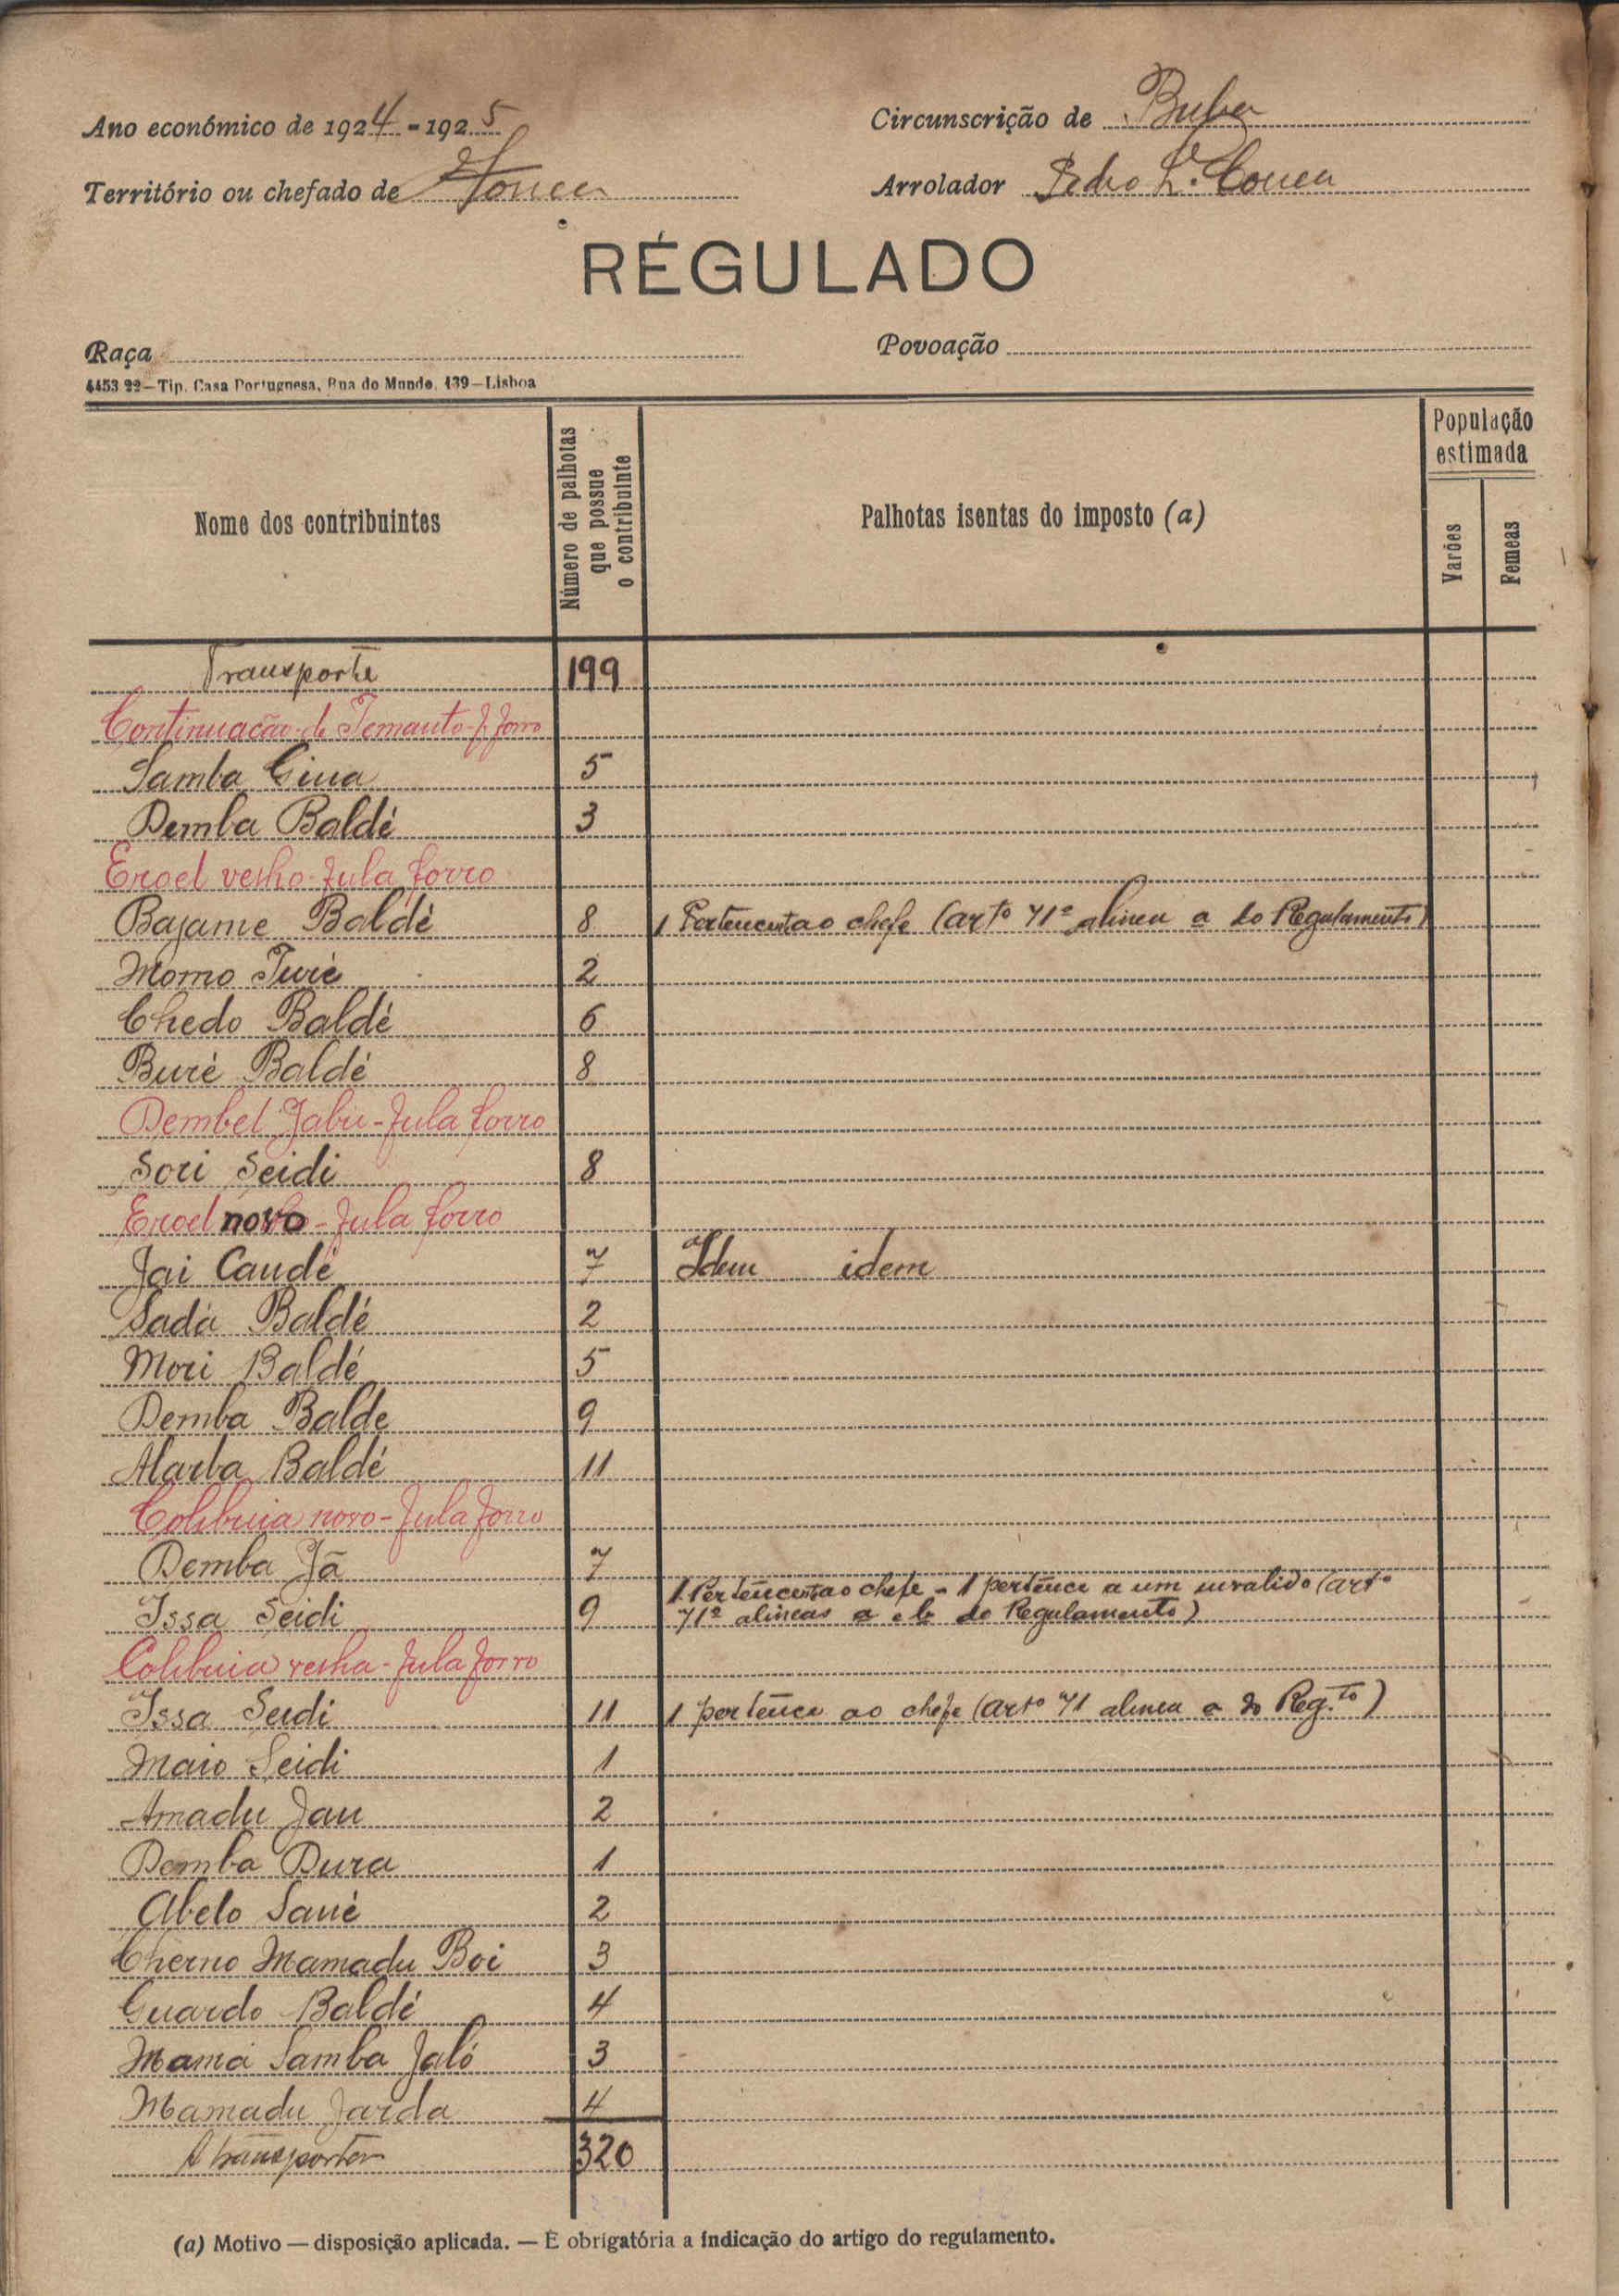 Ano económico de 1924-1925
Circunscrição de Buba
Território ou chefado de
Arrolador Pedro
RÉGULADO
Raça
Povoação
4453 22—Tip. Casa Portuguesa, Rua do Mundo, 139—Lisboa
Nome dos contribuintes
Número de palhotas que possue o contribuinte
Palhotas isentas do imposto (a)
População estimada
Varões
Femeas
Transporte 199
Continuação de
Samba 5
Demba Baldé 3
velho-fula forro
Bajame Baldé 8 1 Pertencenta ao chefe (artº 71º alinea a do Regulamento)
Momo Turé 2
Chedo Baldé 6
Buré Baldé 8
Dembel Jabu-fula forro
Sori Seidi 8
novo-fula forro
Jai Candé 7 Idem idem
Sada Baldé 2
Mori Baldé 5
Demba Balde 9
Baldé 11
Colibuia novo-fula forro
Demba Jã 7
1 Pertencenta ao chefe - 1 pertence a um invalido (artº
Issa Seidi 9 71º alineas a e b do Regulamento)
Colibuia velha-fula forro
Issa Seidi 11 1 pertence ao chefe (artº 71 alinea a do Reg.to)
Maio Seidi 1
Amadu Jau 2
Demba Dura 1
Abelo Sané 2
Cherno Mamadu Boi 3
Guardo Baldé 4
Mama Samba Jaló 3
Mamadu Jarda 4
A transportar 320
(a) Motivo — disposição aplicada. — É obrigatória a indicação do artigo do regulamento.